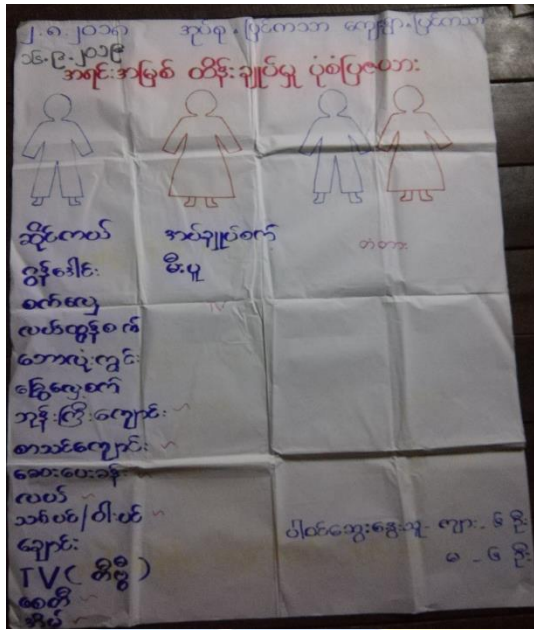 အုပ်စု - ပြင်ကသာ ကျေးရွာ - ပြင်ကသာ
၁၆.၉.၂၀၁၉
အရင်းအမြစ် ထိန်းချုပ်မှု ပုံစံပြဇယား
ဆိုင်ကယ် အပ်ချုပ်စက် တံတား
ဂွန်ဒေါင်း မီးပူ
စက်လှေ
လယ်ထွန်စက်
ဘောလုံးကွင်း
ခြွေလှေ့စက်
ဘုန်းကြီးကျောင်း
စာသင်ကျောင်း
ဆေးပေးခန်း
လယ်
သစ်ပင်/ဝါးပင်
ချောင်း
TV ( တီဗွီ )
စေတီ
အိမ်
ပါဝင်ဆွေးနွေးသူ - ကျား - ၆ ဦး
မ - ၆ ဦး